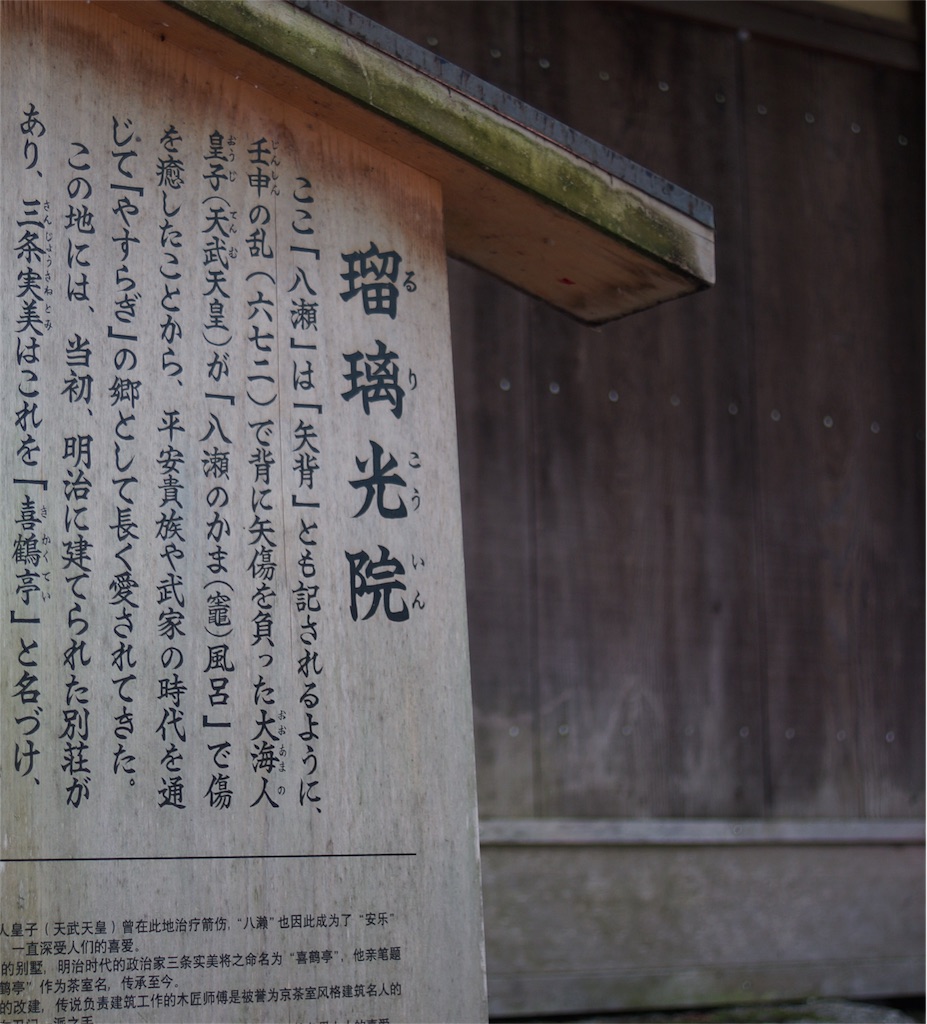 瑠璃光院
ここ「八瀬」は「矢背」とも記されるように、
壬申の乱(六七二)で背に矢傷を負った大海人
皇子(天武天皇)が「八瀬のかま(竈)風呂」で傷
を癒したことから、平安貴族や武家の時代を通
じて「やすらぎ」の郷として長く愛されてきた。
この地には、当初、明治に建てられた別荘が
あり、三条実美はこれを『喜鶴亭』と名づけ、
人皇子(天武天皇)曾在此地治疗箭伤,“八濑”也因此成为了“安乐”
一直深受人们的喜爱。
的别墅,明治时代的政治家三条实美将之命名为“喜鹤亭”,他亲笔题
鹤亭”作为茶室名,传承至今。
的改建,传说负责建筑工作的木匠师傅是被誉为京茶室风格建筑名人的